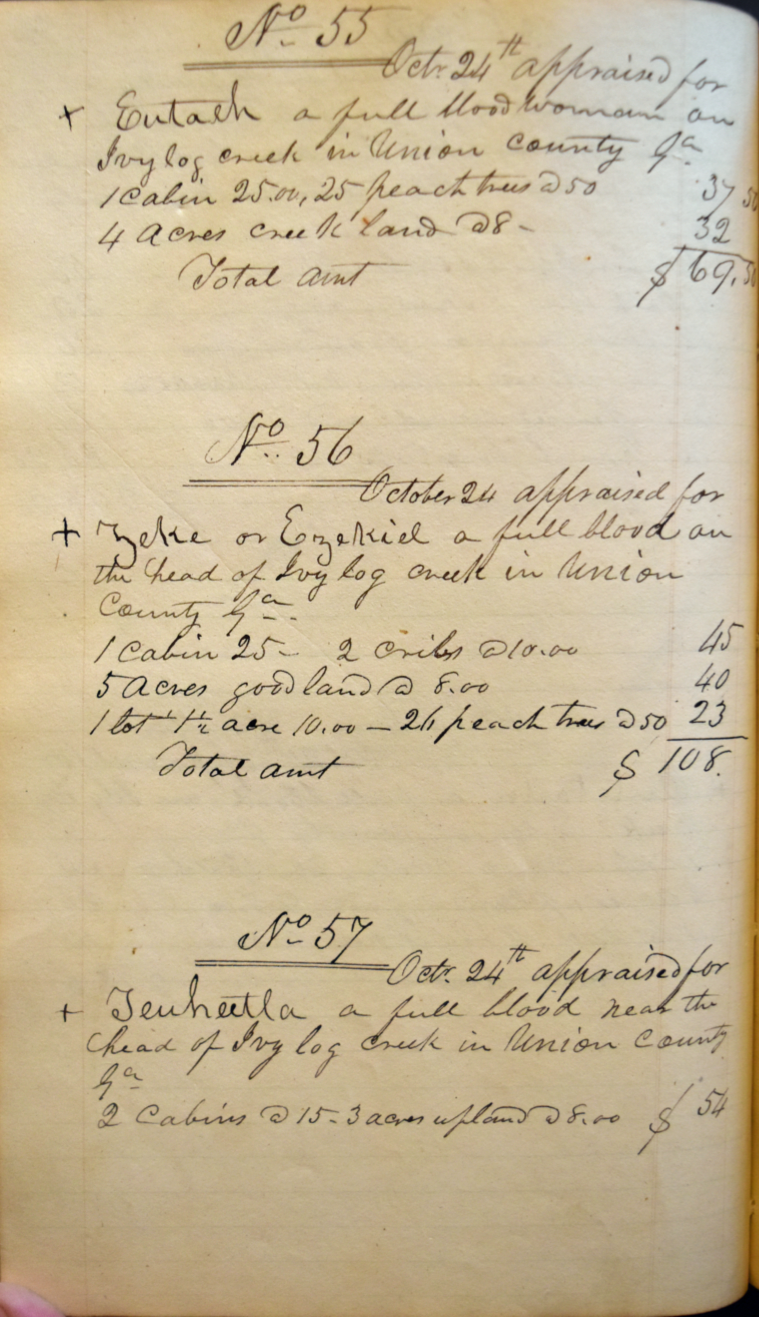 No 55
Octr. 24th appraised for
+ Eutach a full blood woman on
Ivy log creek in Union County Ga
1 Cabin 25.00, 25 peach trees @ 50 37 50
4 Acres creek land @ 8 - 32
Total amt $ 69.50
No. 56
October 24 appraised for
+ Zeke or Ezekiel a full blood on
the head of Ivy log creek in Union
County Ga.
1 Cabin 25 - 2 cribs @ 10.00 45
5 Acres good land @ 8.00 40
1 lot 1½ acre 10.00 — 26 peach trees @ 50 23
Total amt $ 108.
No 57
Octr. 24th appraised for
+ a full blood near the
head of Ivy log creek in Union County
Ga
2 Cabins @ 15 - 3 acres upland @ 8.00 $ 54